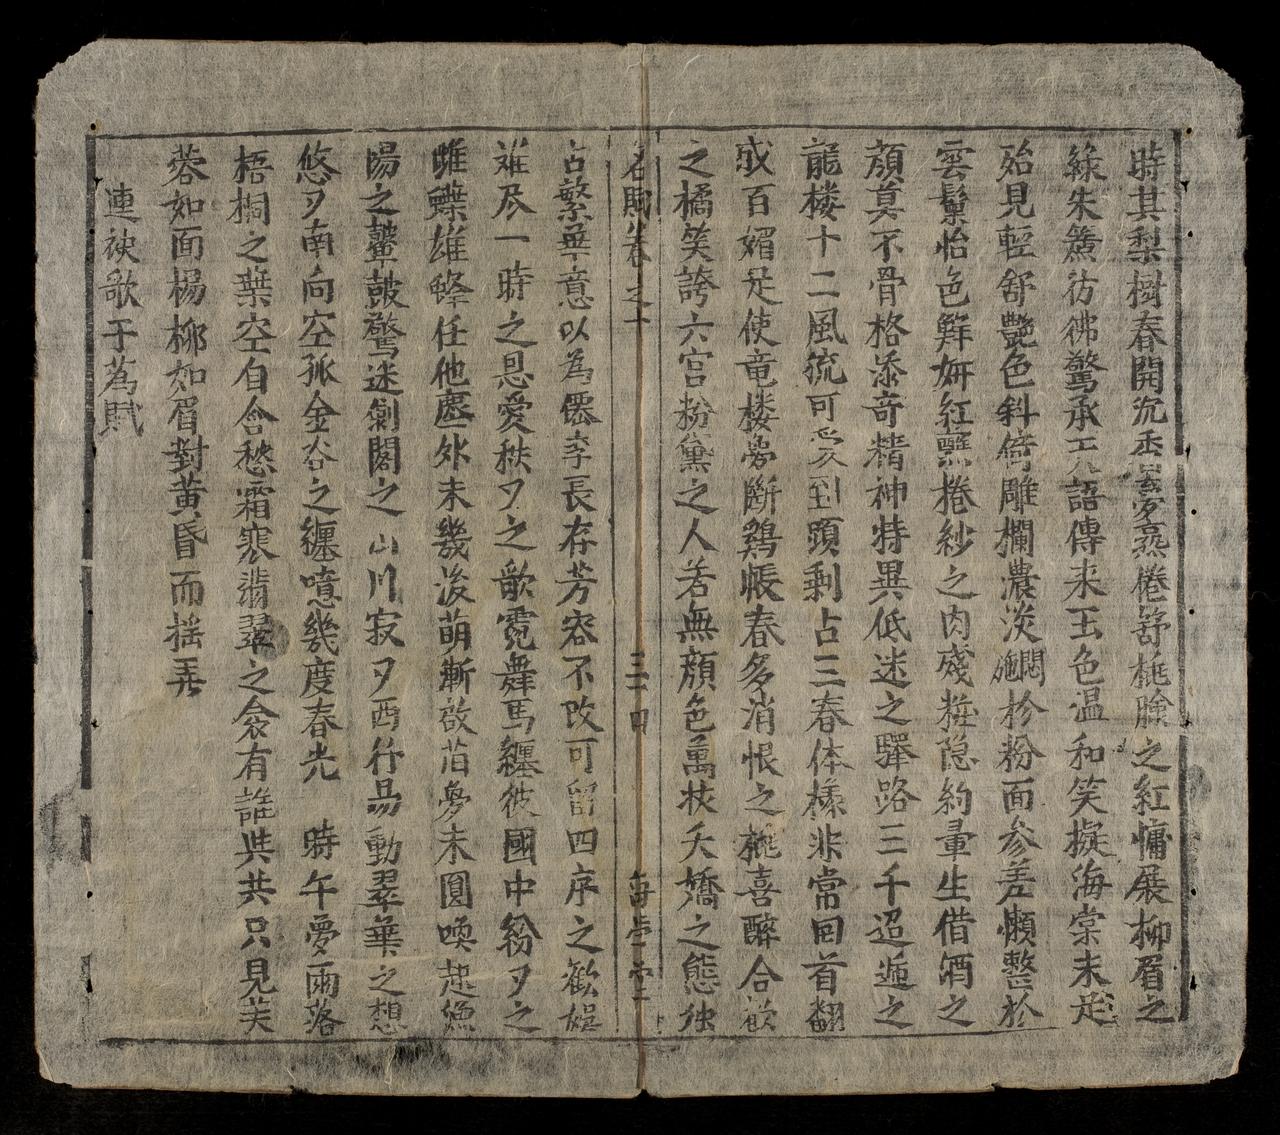 時其梨樹春開沉香夢燕倦舒桃臉之紅慵展柳眉之
綠朱簾彷彿驚承天語傳来玉色温和笑擬海棠未足
殆見輕舒艷色斜倚雕欄濃淡於粉面参差懶整於
雲鬟怡色鮮妍紅飄捲紗之肉殘粧隐約暈生借酒之
顔莫不骨格添奇精神特異低迷之驛路三千迢遞之
龍楼十二風流可愛到頭剩占三春体樣非常回首翻
或百媚足使竜楼夢斷鷄帳春多消恨之桃喜醉合歡
之橘笑誇六宫粉黛之人若無顔色萬枝夭嬌之態独
名賦卷之 三十四 每堂
占繁華意以為僊李長存芳容不改可留四序之歡娯
难尽一時之恩愛秩夕之歌霓舞馬纏彼國中紛夕之
雌蝶雄蜂任他塵外未幾浚萌漸啟萡夢未圓喚起漁
陽之鼙鼓驚迷劍閣之山川寂夕西行易動翠華之想
悠夕南向空孤金合之纏噫幾度春光 時午夢雨落
梧桐之葉空自含愁霜寒翡翠之衾有誰共共只見芙
蓉如面楊柳如眉對黃昏而摇弄
連袂歌于蔿賦